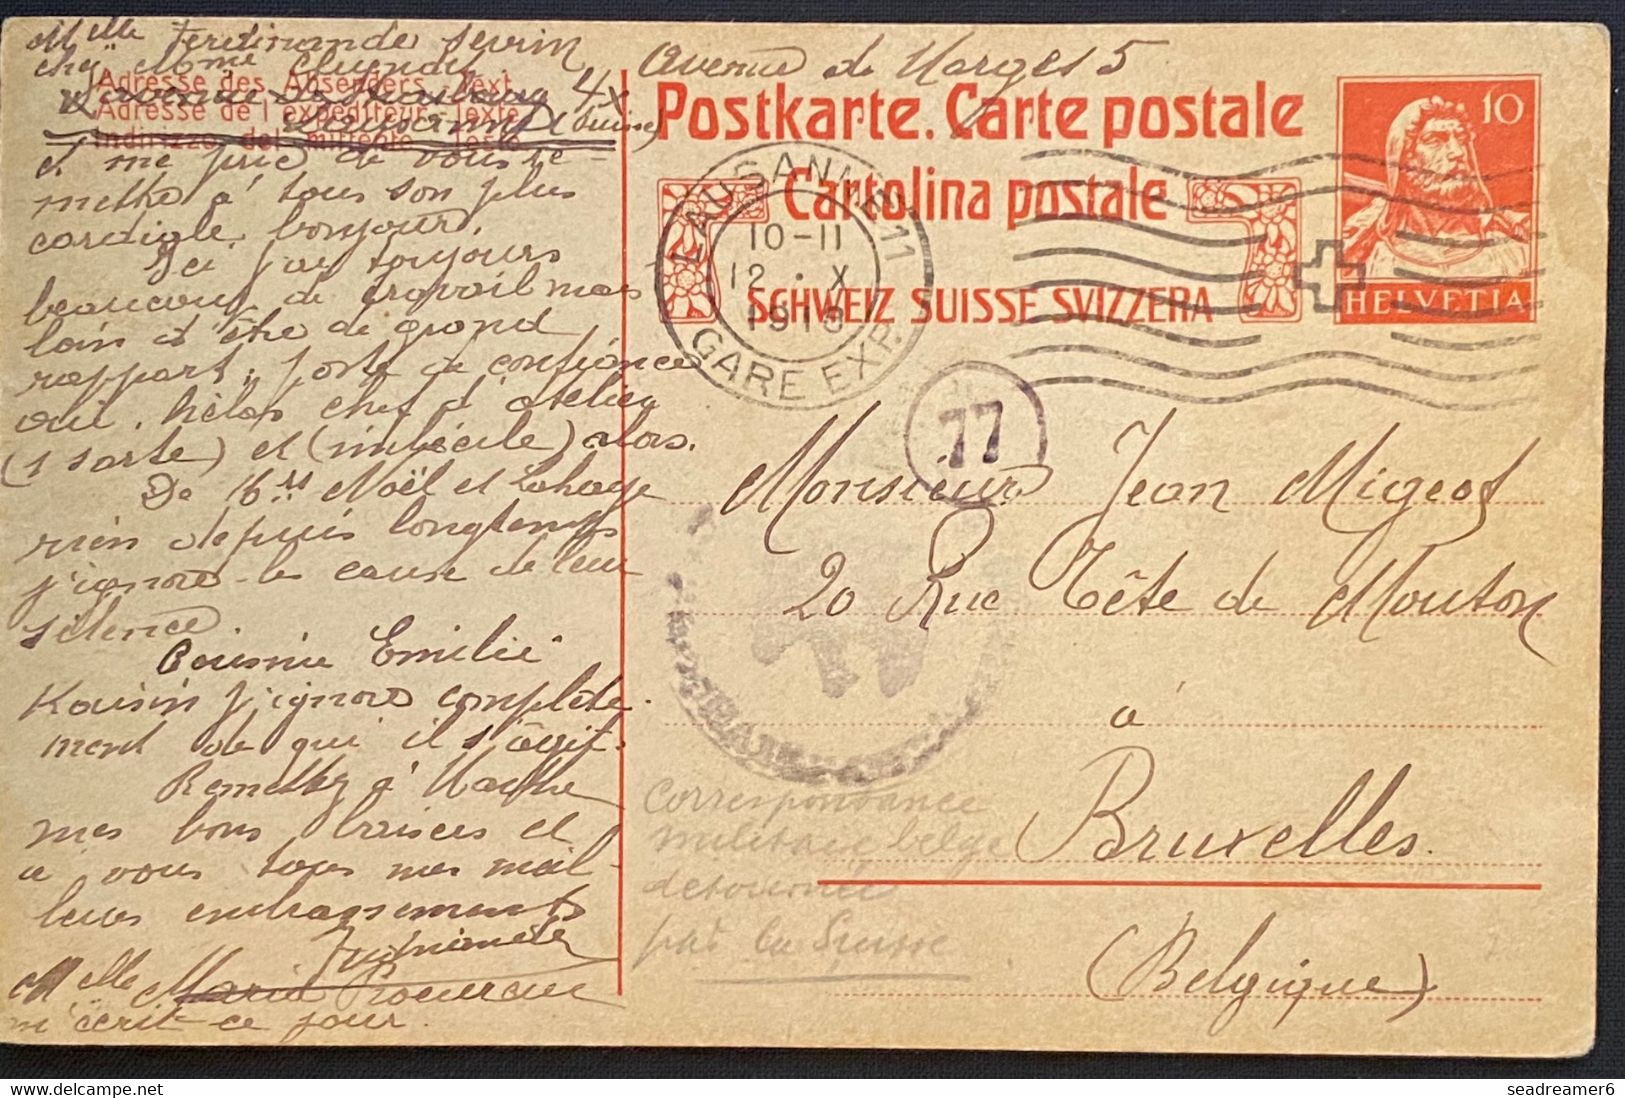 Melle Ferdinande Sevrin
chez Mme
Avenue de Morges 5
Adresse des Absenders - Text
Adresse de l'expéditeur - Texte
4x
Lausanne (Suisse)
Indirizzo del mittente - Testo
Postkarte. Carte postale
Cartolina postale
SCHWEIZ SUISSE SVIZZERA
10
HELVETIA
LAUSANNE 11
10-11
12 · X
1918
GARE EXP.
77
et me prie de vous re-
mettre à tous son plus
cordiale bonjour.
Ici j'ai toujours
beaucoup de travail mais
loin d'être de grand
rapport, poste de confiance
oui, hélas chef d'atelier
(1 sorte) et (imbécile) alors.
De 16rs Noël et Lahaye
rien depuis longtemps
j'ignore la cause de leur
silence.
Cousine Emilie
Kousin j'ignore complète-
ment de qui il s'agit.
Remettez à Marthe
mes bons baisers et
à vous tous mes meil-
leurs embrassements
Melle Maria
m'écrit ce jour.
Monsieur Jean Migeot
20 Rue Tête de Mouton
à
Bruxelles.
(Belgique)
correspondance
militaire belge
détournée
par la Suisse
seadreamer6
www.delcampe.net